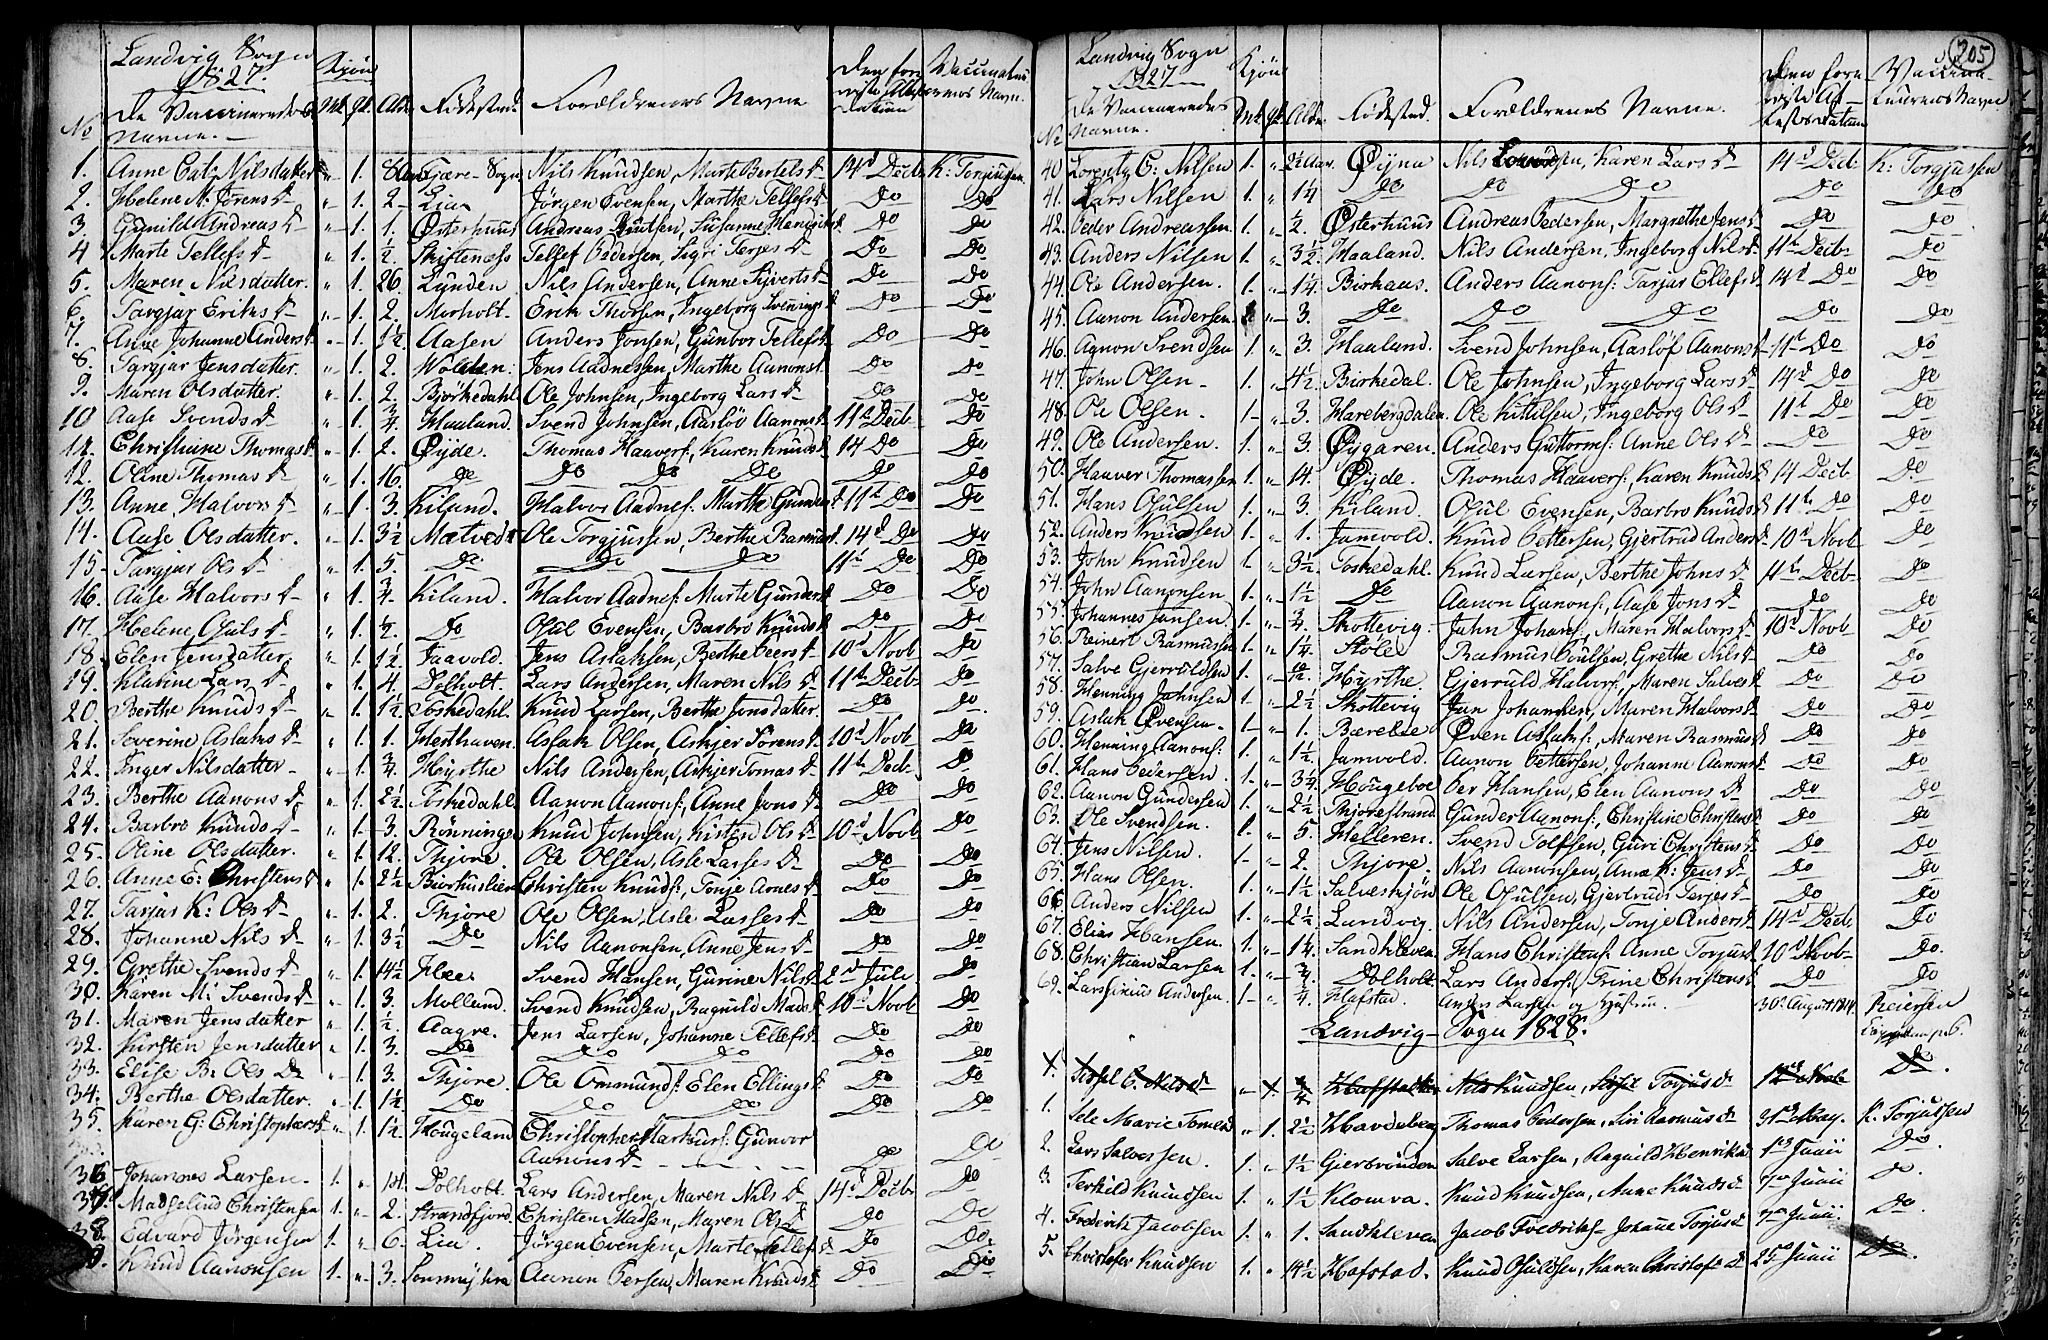 Landvig Sogn
1827.
Kjön
No De Vaccineredes Navne. Mk. Qk. Alder Födested. Forældrenes Navne Den fore viste Attest Datum Vaccinateurernes Navn.
1. Anne Cat: Nilsdatter " 1. Fjære-Sogn Nils Knudsen, Marte Bertels d 14d Decb K: Torjusen
2. Helene M: Jörens d " 1. 2 Lia Jörgen Evensen, Marthe Tellefs d Do Do
3. Gunild Andreas d " 1. 1. Österhuus Andreas Poulsen, Susanne Henrichs d Do Do
4 Marte Tellefs d " 1. ½ Skiftenæss Tellef Pedersen, Sigri Terjes d Do Do
5. Maren Nilsdatter " 1. 26. Lunden Nils Andersen, Anne Sjverts d Do Do
6. Targjær Eriks d " 1. 2. Morholt. Erik Thorsen, Ingeborg Svennings d Do Do
7. Anne Johanne Anders d " 1. 1½ Aasen Anders Jonsen, Gunbor Tellefs d Do Do
8. Targjær Jensdatter. " 1. 2. Wolden. Jens Aadnessen, Marthe Aanons d Do Do
9. Maren Olsdatter. " 1. 2. Bjørkedahl Ole Johnsen, Ingeborg Lars d Do Do
10 Aase Svends d " 1. ¾ Haaland. Svend Johnsen, Aaslöv Aanons d 11t Decb Do
11. Christiane Thomas d " 1. 2. Øyde. Thomas Haavers:, Karen Knuds d 14 Do Do
12. Oline Thomas d " 1. 16. Do Do Do Do Do Do
13. Anne Halvors d " 1. 3. Kiland. Halvor Aadnes: Marthe Gunders d 11t Do Do
14. Aase Olsdatter. " 1. 3½ Molved Ole Torgjussen, Berthe Rasmus d 14d Do Do
15. Targjær Ols d " 1. 5. Do Do Do 11t Do Do
16. Aase Halvors d " 1. ¾ Kiland. Halvor Aadnes: Marte Gunders d Do Do
17. Helene Osuls d " 1. ½. Do Osul Evensen, Barbro Knuds d Do Do
18. Elen Jensdatter. " 1. 1½ Jaavold. Jens Aslaksen, Berthe Peers d 10d Novb Do
19. Klarine Lars d " 1. 4. Dolholt. Lars Andersen, Maren Nils d 11t Decb Do
20. Berthe Knuds d " 1. 1½ Toskedahl. Knud Larsen, Berthe Jonsdatter. Do Do
21. Severine Aslaks d " 1. 1. Hesthaven. Aslak Olsen, Askjer Sörens d 10d Novb Do
22. Inger Nilsdatter " 1. ¾ Höyrthe Nils Andersen, Askjer Tomas d 11t Decb Do
23. Berthe Aanons d " 1. 2½ Toskedahl Aanon Aanons:, Anne Jons d Do Do
24. Barbro Knuds d " 1. 3. Rønningen Knud Johnsen, Kisten Ols d 10d Novb Do
25. Oline Olsdatter. " 1. 12. Thjore. Ole Olsen, Asle Lasses d Do Do
26. Anne E: Christens d " 1. 2½ Birkeslien Christen Knuds:, Tonje Arnes d Do Do
27. Tarjus K: Ols d " 1. 2. Thjore Ole Olsen, Asle Lasses d Do Do
28. Johanne Nils d " 1. 3½ Do Nils Aanonsen, Anne Jens d Do Do
29. Grethe Svends d " 1. 14½ Flee Svend Hansen, Gurine Nils d 2d Jule Do
30. Karen M: Svends d " 1. 3. Molland. Svend Knudsen, Ragnild Mads d 10d Novb Do
31. Maren Jensdatter " 1. ½. Aagre. Jens Larsen, Johanne Tellefs d Do Do
32. Kirsten Jensdatter " 1. 3. Do Do Do Do Do
33. Elise B: Ols d " 1. 3. Thjore. Ole Ommunds: Elen Ellings d Do Do
34. Berthe Olsdatter. " 1. 1½ Do Do Do Do Do
35. Karen G: Christophers d " 1. 1½ Hougeland Christopher Gunvor
Aanons d Do Do
36 Johannes Larsen 1. " 14. Dolholt. Lars Andersen, Maren Nils d 14d Decb Do
37. Madselius Christensen 1. " 2. Strandfjord Christen Madsen, Maren Ols d Do Do
38. Edvard Jörgensen 1. " 6. Lia. Jörgen Evensen, Marte Tellefs d Do Do.
39. Knud Aanonsen 1. " 3. Aanon Persen, Maren Knuds d Do Do
205
Landvig Sogn
1827
Kjön
No De Vaccineredes Navne. Mk Qk. Alder. Födested. Forældrenes Navne. Den fore viste Attests Datum Vaccinateurernes Navn
40 Lorentz C: Nilsen 1. " 2½ Aar. Øyna Nils Knudsen, Karen Lars d 14d Decb K: Torgjussen
41. Lars Nilsen 1. " 1¼ Do Do Do Do Do
42. Peder Andreassen 1. " ½. Österhuus Andreas Pedersen, Margrethe Jens d Do Do
43. Anders Nilsen 1. " 3½ Haaland. Nils Andersen, Ingeborg Nils d 11t Decb Do
44. Ole Andersen. 1. " 1¼ Birkaas. Anders Aanons: Tarjær Ellefs d 14d Do Do
45. Aanon Andersen " 3. Do Do Do Do Do
46. Aanon Svendsen 1. " 3. Haaland. Svend Johnsen, Aaslöf Aanons d 11t Do Do
47. John Olsen 1. " 4½ Birkedal. Ole Johnsen, Ingeborg Lars d 14d Do Do
48. Ole Olsen. 1 " 3. Harebergdalen. Ole Kittilsen, Ingeborg Ols d 11t Do Do
49. Ole Andersen 1. " 3. Øygaren. Anders Guttorms: Anne Ols d Do Do
50. Haaver Thomassen 1. " 14. Øyde. Thomas Haavers: Karen Knuds d 14 Decb Do
51. Hans Osulsen 1. " 3. Kiland. Osul Evensen, Barbro Knuds d 11t Do Do
52. Anders Knudsen 1. " 1. Jamvold. Knud Pettersen, Gjertrud Anders d 10d Novb Do
53. John Knudsen 1. " 3½. Toskedahl. Knud Larsen, Berthe Johns d 11t Decb Do
54. John Aanonsen 1. " 1½ Do Aanon Aanons:, Aase Jons d Do Do
55. Johannes Jansen. 1. " ¾. Skottevig. Jahn Johans:, Maren Halvors d 10d Novb Do
56. Reinert Rasmussen 1. " 1¼ Stöle. Rasmus Poulsen, Grethe Nils d Do Do
57. Salve Gjeruldsen 1. " Höyrthe Gjeruld Halvors:, Maren Salves d Do Do
58. Henning Jahnsen 1. " 2½ Skottevig Jan Johansen, Maren Halvors d Do Do
59. Aslak Øvensen. 1 " 1. Bærebie Øven Aslaks:, Maren Rasmus d Do Do
60. Henning Aanons: 1. " 1½ Jamvold. Aanon Pettersen, Johanne Aanons d Do Do
61. Hans Pedersen 1. " 3¼ Hougeboe Per Hansen, Elen Aanons d Do Do
62. Aanon Gundersen 1. " 2½ Thjorestrand. Gunder Aanons:, Christine Christens d Do Do
63. Ole Svendsen. 1. " 5. Helleren. Svend Tolfsen, Guri Christens d Do Do
64. Jens Nilsen. 1 " 2. Thjore. Nils Aanonsen, Anne K: Jens d Do Do
65. Hans Olsen. 1. " 1½ Salveskjön Ole Osulsen, Gjertrud Terjes d Do Do
66. Anders Nilsen 1. " 2½ Landvig. Nils Andersen, Tonje Anders d 14d Decb Do
67. Elias Hansen. 1. " 1¼ Sandkleven Hans Christens: Anne Torjus d 10d Novb Do.
68. Christian Larsen 1. " ¾. Dolholt. Lars Anders: Trine Christens d Do Do
69. Larssinius Andersen. 1 " ¼ Hafstad. Anders Larsen og Hustru. 30d August 1814 Reiersen
Landvig Sogn 1828.
Sissel C. Nils d " ¾ Nils Knudsen, Sissel Torjus d 12d Novb Do.
1. Sele Marie Tomasd " 1. 2½ Havdeberg Thomas Pedersen, Siri Rasmus d 31d May. K. Torjussen
2. Lars Salvessen. 1. " 1½ Gjerbrönden Salve Larsen, Ragnild Henriks d 1ste Junii Do.
3. Terkild Knudsen 1. " 1½ Klomva. Knud Knudsen, Anne Knuds d 7de Junii Do.
4. Frederik Jacobsen 1. " 1. Sandkleven Jacob Fredriks Johane Torjus d 7de Junii. Do.
5. Christofer Knudsen 1. " 4½ Hafstad. Knud Osuldsen, Karen Christofs d 25de Junii Do.